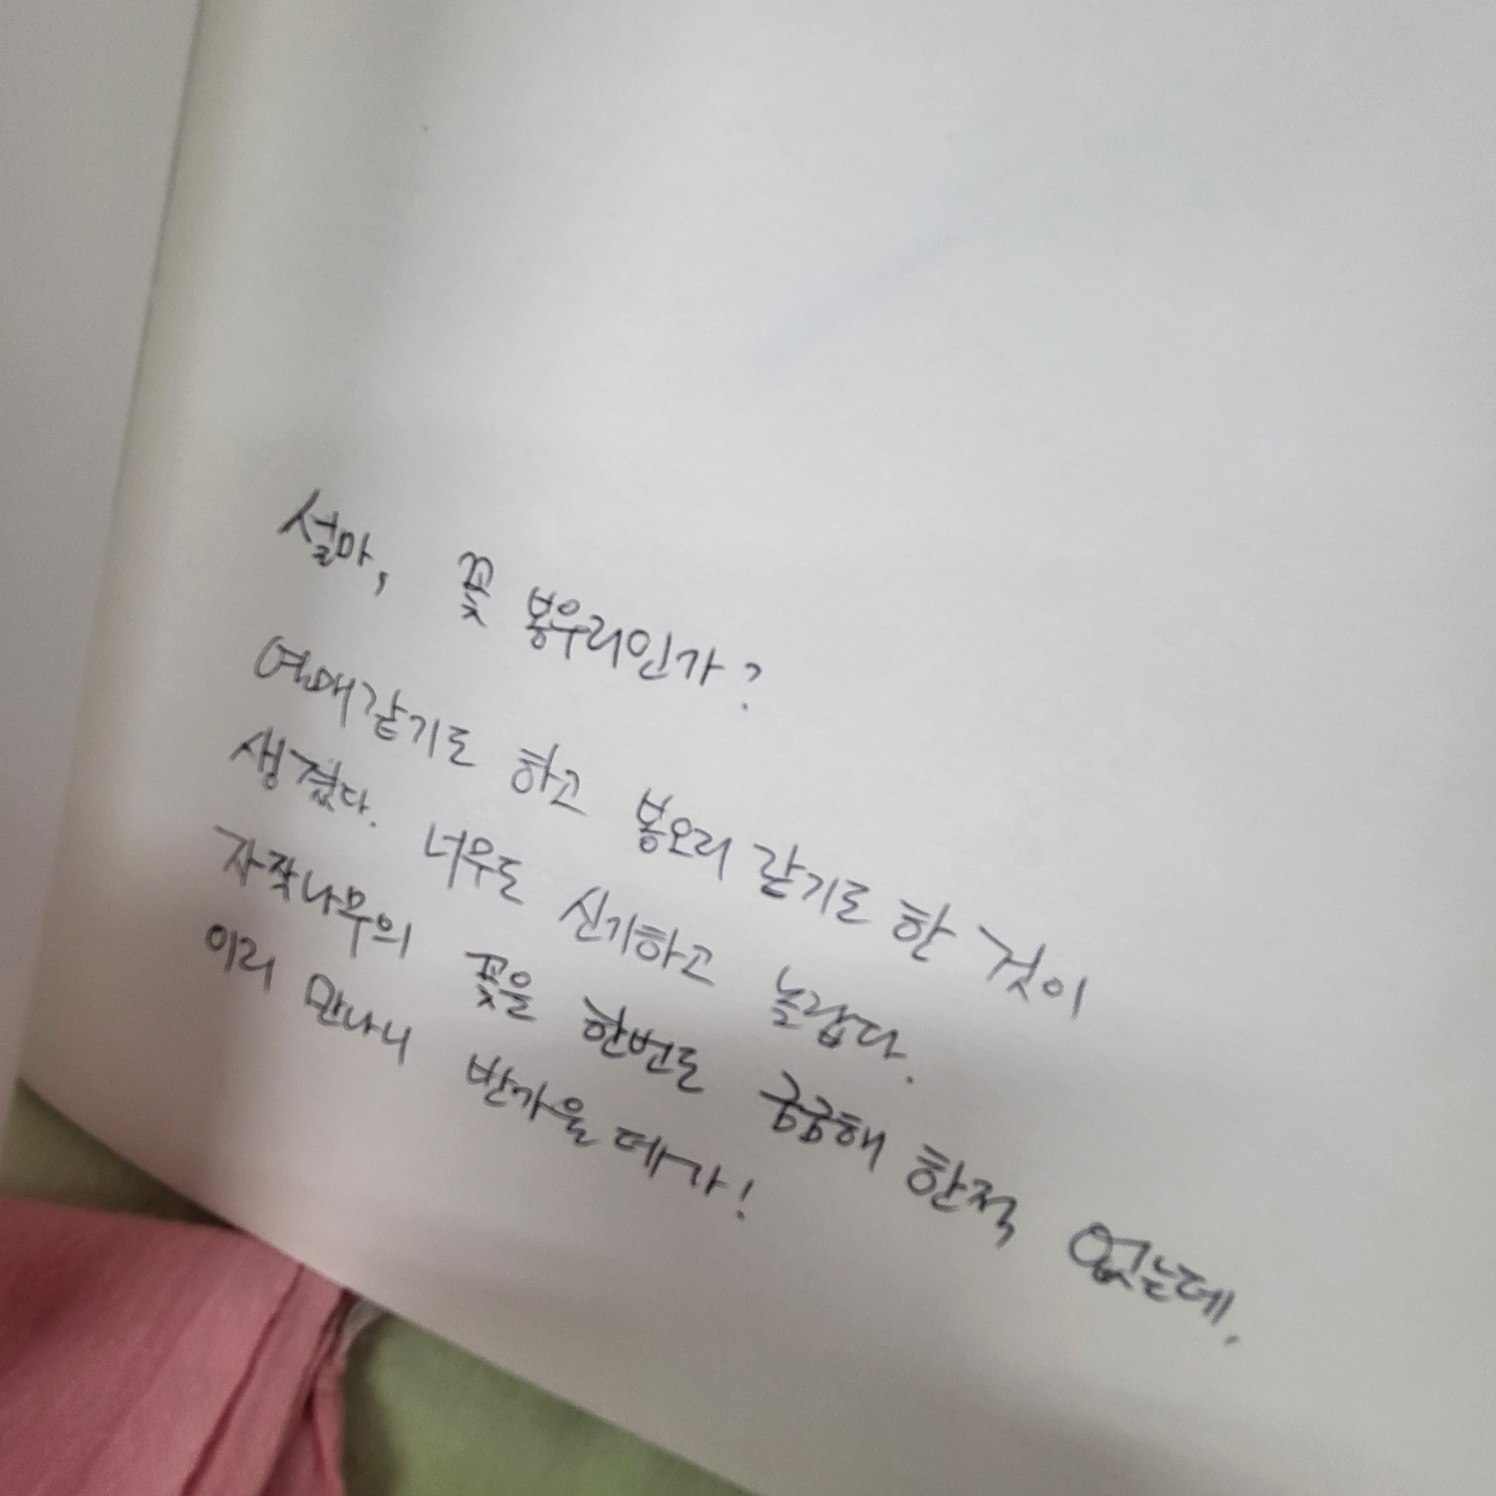 설마, 꽃 봉우리인가?
열매같기도 하고 봉오리 같기도 한 것이
생겼다. 너무도 신기하고 놀랍다.
자작나무의 꽃을 한번도 궁금해 한적 없는데,
이리 만나니 반가울 데가!